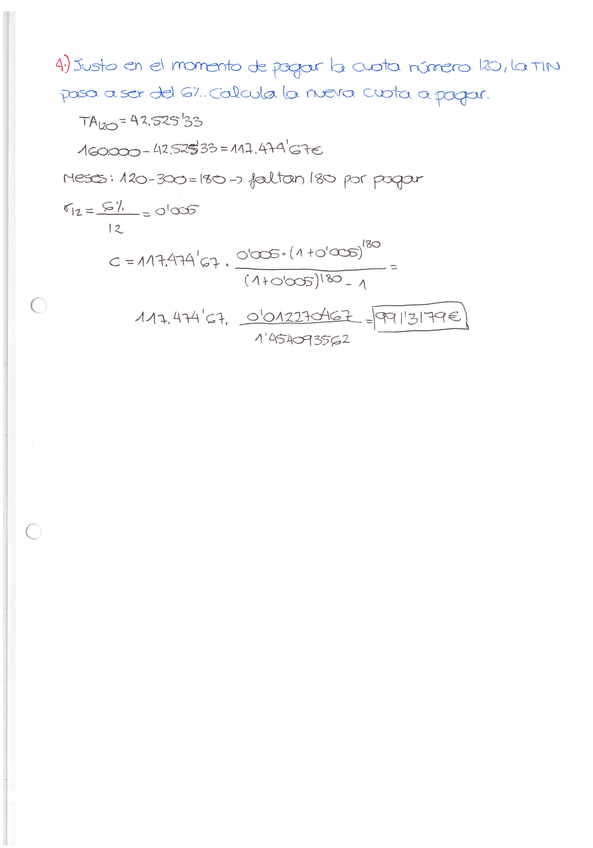 4.) Justo en el momento de pagar la cuota número 120, la TIN
pasa a ser del 6%. Calcula la nueva cuota a pagar.
TA120 = 42.525'33
160.000 - 42.525'33 = 117.474'67€
Meses: 120-300 = 180 -> faltan 180 por pagar
r12 = 6% / 12 = 0'005
C = 117.474'67 · 0'005 · (1+0'005)^180 / (1+0'005)^180 - 1 =
117.474'67 · 0'012270467 / 1'454093562 = 991'3179€